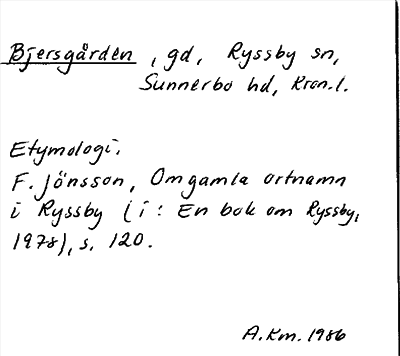 Bjersgården, gd, Ryssby sn,
Sunnerbo hd, Kron.l.
Etymologi.
F. Jönsson, Om gamla ortnamn
i Ryssby (i: En bok om Ryssby,
1978), s. 120.
A.Km. 1986